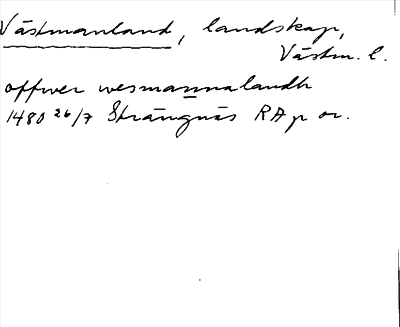 Västmanland, landskap,
Västm. l.
offwer wesmannalandh
1480 26/7 Strängnäs RAp or.